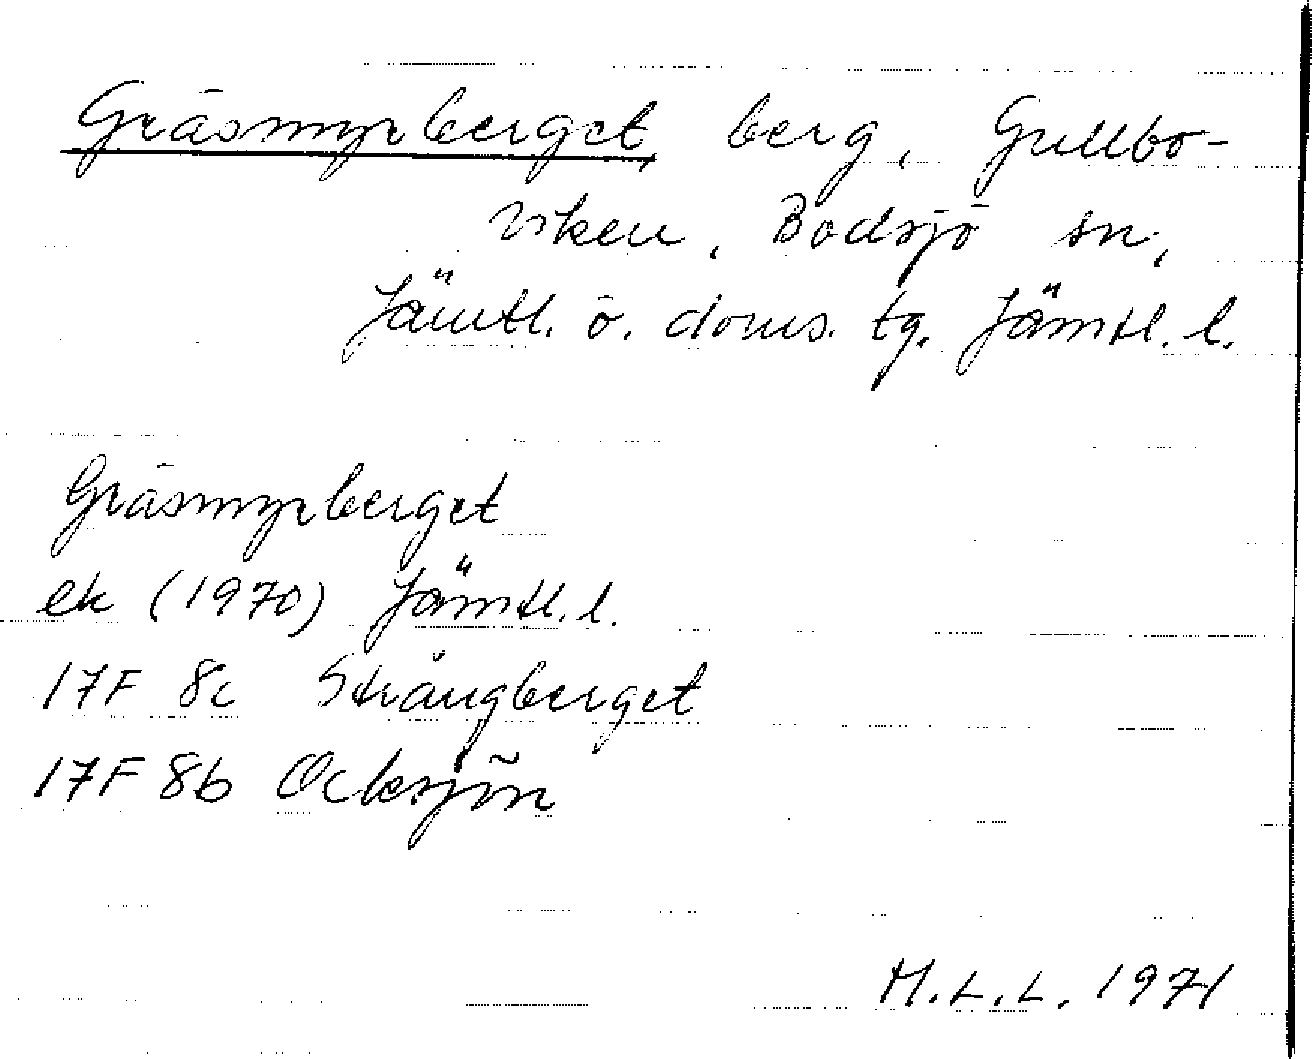 Gräsmyrberget, berg, Gullbo-
viken, Bodsjö sn,
Jämtl. ö. doms. tg. Jämtl. l.
Gräsmyrberget
ek (1970) Jämtl. l.
17F 8c Strångberget
17F 8b Ocksjön
M.L.L. 1971